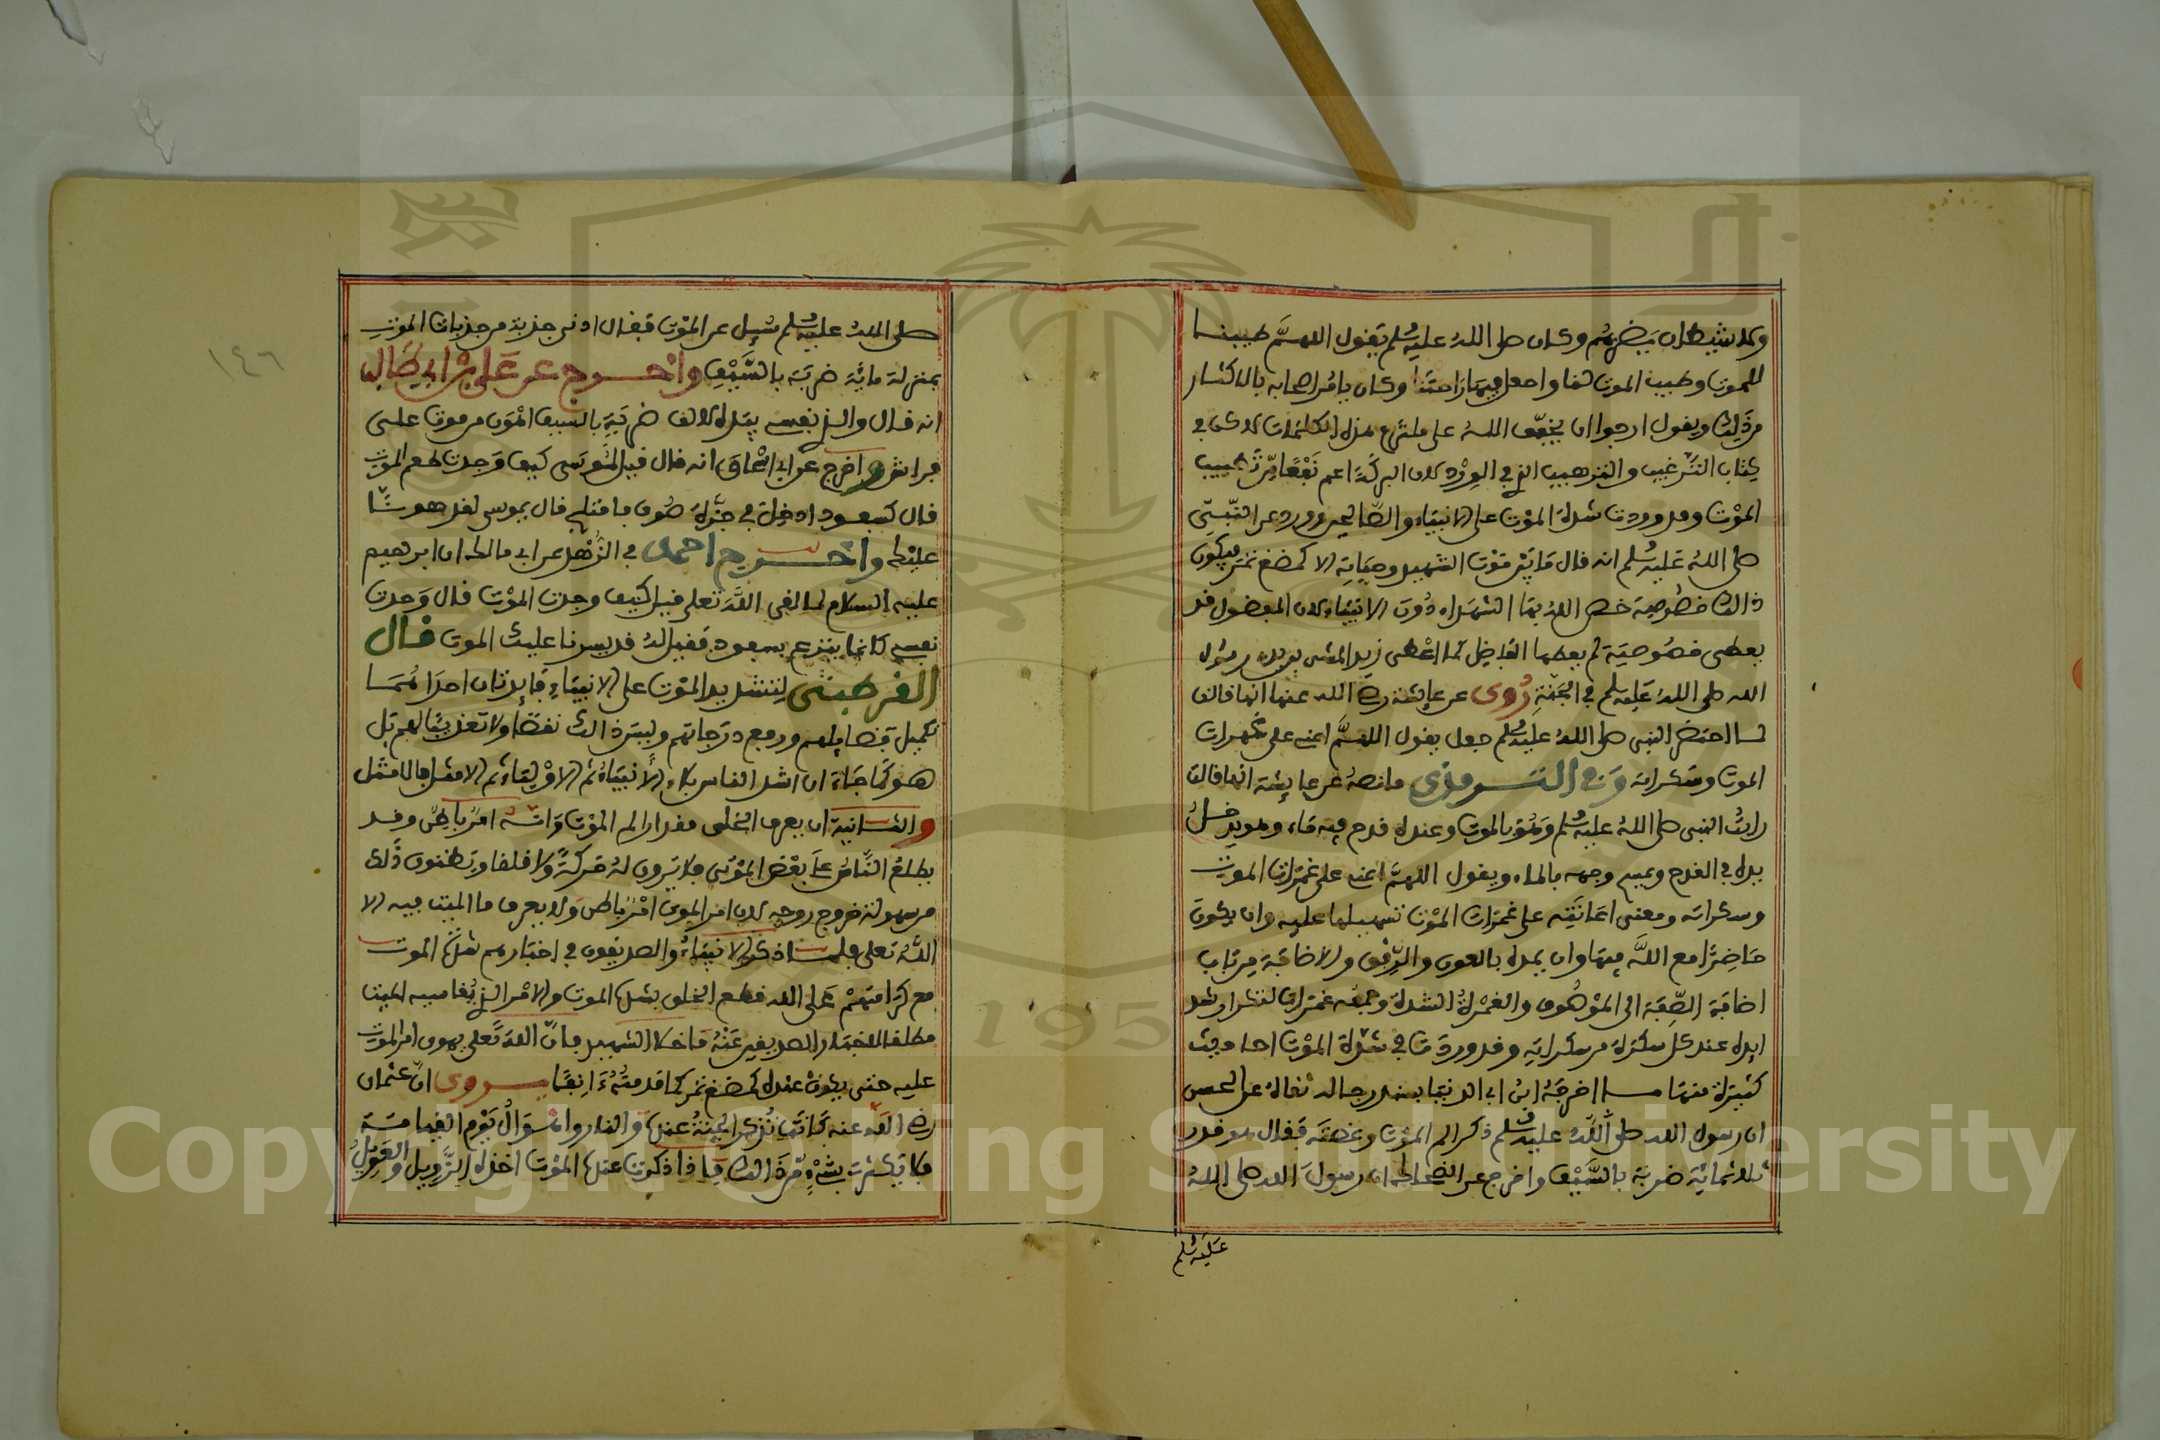 ولا شيطان يضرهم وكان صلى الله عليه وسلم يقول اللهم طيبنا
للموت وطيب الموت لنا واجعل فيها راحتنا وكان يامر اصحابه بالاكثار
من ذلك ويقول ارجوا ان يخفف الله على ملتزم هذه الكلمات لاكن في
كتاب الترغيب والترهيب الذي في الورد لان البركة اعم نفعا من تطييب
الموت وقد وردت شدة الموت على الانبياء والصالحين ورد عن النبي
صلى الله عليه وسلم انه قال ما بين موت الشهيد وحياته الا كمضغ تمر فيكون
ذالك خصوصية خص الله بها الشهداء دون الانبياء لان المفضول قد
يعطى خصوصية لم يعطها الفاضل كما اعطى زيد المشي بين يدي رسول
الله صلى الله عليه وسلم في الجنة روى عن عايشة رضي الله عنها انها قالت
لما احتضر النبي صلى الله عليه وسلم جعل يقول اللهم اعني على غمرات
الموت وسكراته وفي الترمذي ما نصه عن عايشة انها قالت
رايت النبي صلى الله عليه وسلم وهو بالموت وعنده قدح فيه ماء وهو يدخل
يده في القدح ويمسح وجهه بالماء ويقول اللهم اعني على غمرات الموت
وسكراته ومعنى اعانته على غمرات الموت تسهيلها عليه وان يكون
حاضرا مع الله فيها وان يمده بالعون والرفق والاضافة من باب
اضافة الصفة الى الموصوف والغمرة الشدة وجمعه غمرات
ابده عند كل سكرة من سكراته وقد وردت في شدة الموت احاديث
كثيرة منها ما اخرجه ابن ابي الدنيا بسند رجاله ثقات عن الحسن
ان رسول الله صلى الله عليه وسلم ذكر الم الموت وغصته فقال هو قدر
ثلاثمائة ضربة بالسيف واخرج عن الضحاك ان رسول الله صلى الله
عليه وسلم
صلى الله عليه وسلم سيل عن الموت فقال ادنى جذبة من جذبات الموت
بمنزلة ماية ضربة بالسيف واخرج عن علي بن ابي طالب
انه قال والذي نفسي بيده لالف ضربة بالسيف اهون من موت على
فراش واخرج عن ابي اسحاق انه قال قيل لموسى كيف وجدت طعم الموت
قال كسفود ادخل في جزة صوف فامتلخ قال يموسى لقد هونا
عليك واخرج احمد في الزهد عن ابي مالك ان ابرهيم
عليه السلام لما لقي الله تعلى قيل كيف وجدت الموت قال وجدت
نفسي كانما ينزع بسفود فقيل له قد يسرنا عليك الموت قال
القرطبي لتشديد الموت على الانبياء فايدتان احداهما
تكميل فضايلهم ورفع درجاتهم وليس ذالك نقصا ولا تعذيبا لهم بل
هو كما جاء ان اشد الناس بلاء الانبياء ثم الاولياء ثم الامثل فالامثل
والثانية ان يعرف الخلق مقدار الم الموت وانه امر باطن وقد
يطلع الناس على بعض الموتى فلا يرون له حركة ولا قلقا ويظنون ذلك
من سهولة خروج روحه لان امر الموت امر باطن ولا يعرف ما الميت فيه الا
الله تعلى فلما ذكر الانبياء والصديقون في اخبارهم شدة الموت
مع كرامتهم على الله قطع الخلق بشدة الموت والامر الذي يقاسيه الميت
مطلقا لاخبار الصديقين عنه ما خلا الشهيد فان الله تعلى يهون امر الموت
عليه حتى يكون عنده كمضغ تمر كما قدمته ءانفا وروى ان عثمان
رضي الله عنه كانت تذكر الجنة عنده والنار واهوال يوم القيامة
فلا يكترث بشيء من ذالك فاذا ذكرت عنده الموت اخذه الزويل والعويل
١٤٦
Copyright © King Saud University
1957